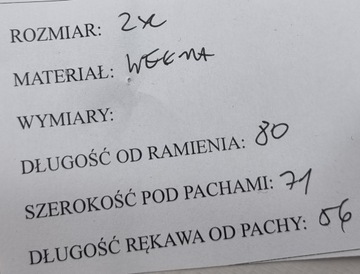 ROZMIAR: 2x
MATERIAŁ: WEŁNA
WYMIARY:
DŁUGOŚĆ OD RAMIENIA: 80
SZEROKOŚĆ POD PACHAMI: 71
DŁUGOŚĆ RĘKAWA OD PACHY: 56